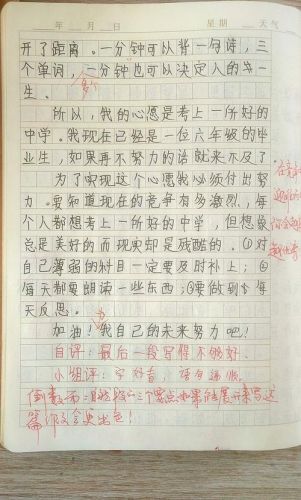 年 月 日 星期 天气
开了距离。一分钟可以背一句诗，三
个单词，一分钟也可以决定人的一
生。
所以，我的心愿是考上一所好的
中学。我现在已经是一位六年级的毕
业生，如果再不努力的话就来不及了
为了实现这个心愿我必须付出努
力。要知道现在的竞争有多激烈，每
个人都想考上一所好的中学，但想象
总是美好的而现实却是残酷的。①对
自己薄弱的科目一定要及时补上；②
每天都要朗读一些东西；③要做到每
天反思。
加油！为我自己的未来努力吧！
自评：最后一段写得不够好.
小组评：字好看，语句通顺.
倒数第二自然段的三个要点如果能展开来写,这
篇作文会更出色！